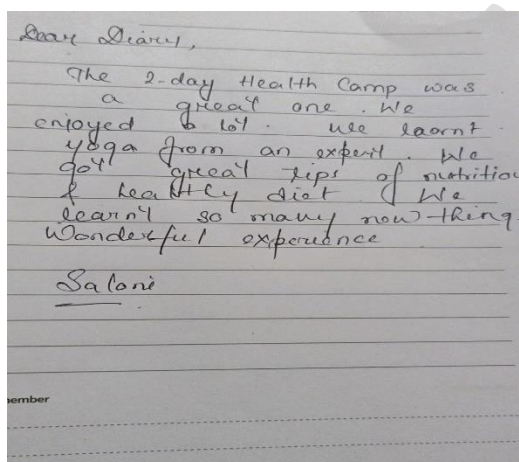 Dear Diary,
The 2-day Health Camp was
a great one. We
enjoyed a lot. We learnt
yoga from an expert. We
got great tips of nutrition
& healthy diet. We
learn't so many new thing
Wonderful experience
Saloni
ember